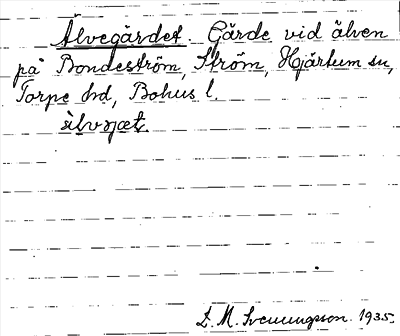 Älvegärdet. Gärde vid älven
på Bondeström, Ström, Hjärtum sn,
Torpe hd, Bohus l.
älvojæt.
L. M. Svenungsson. 1935.